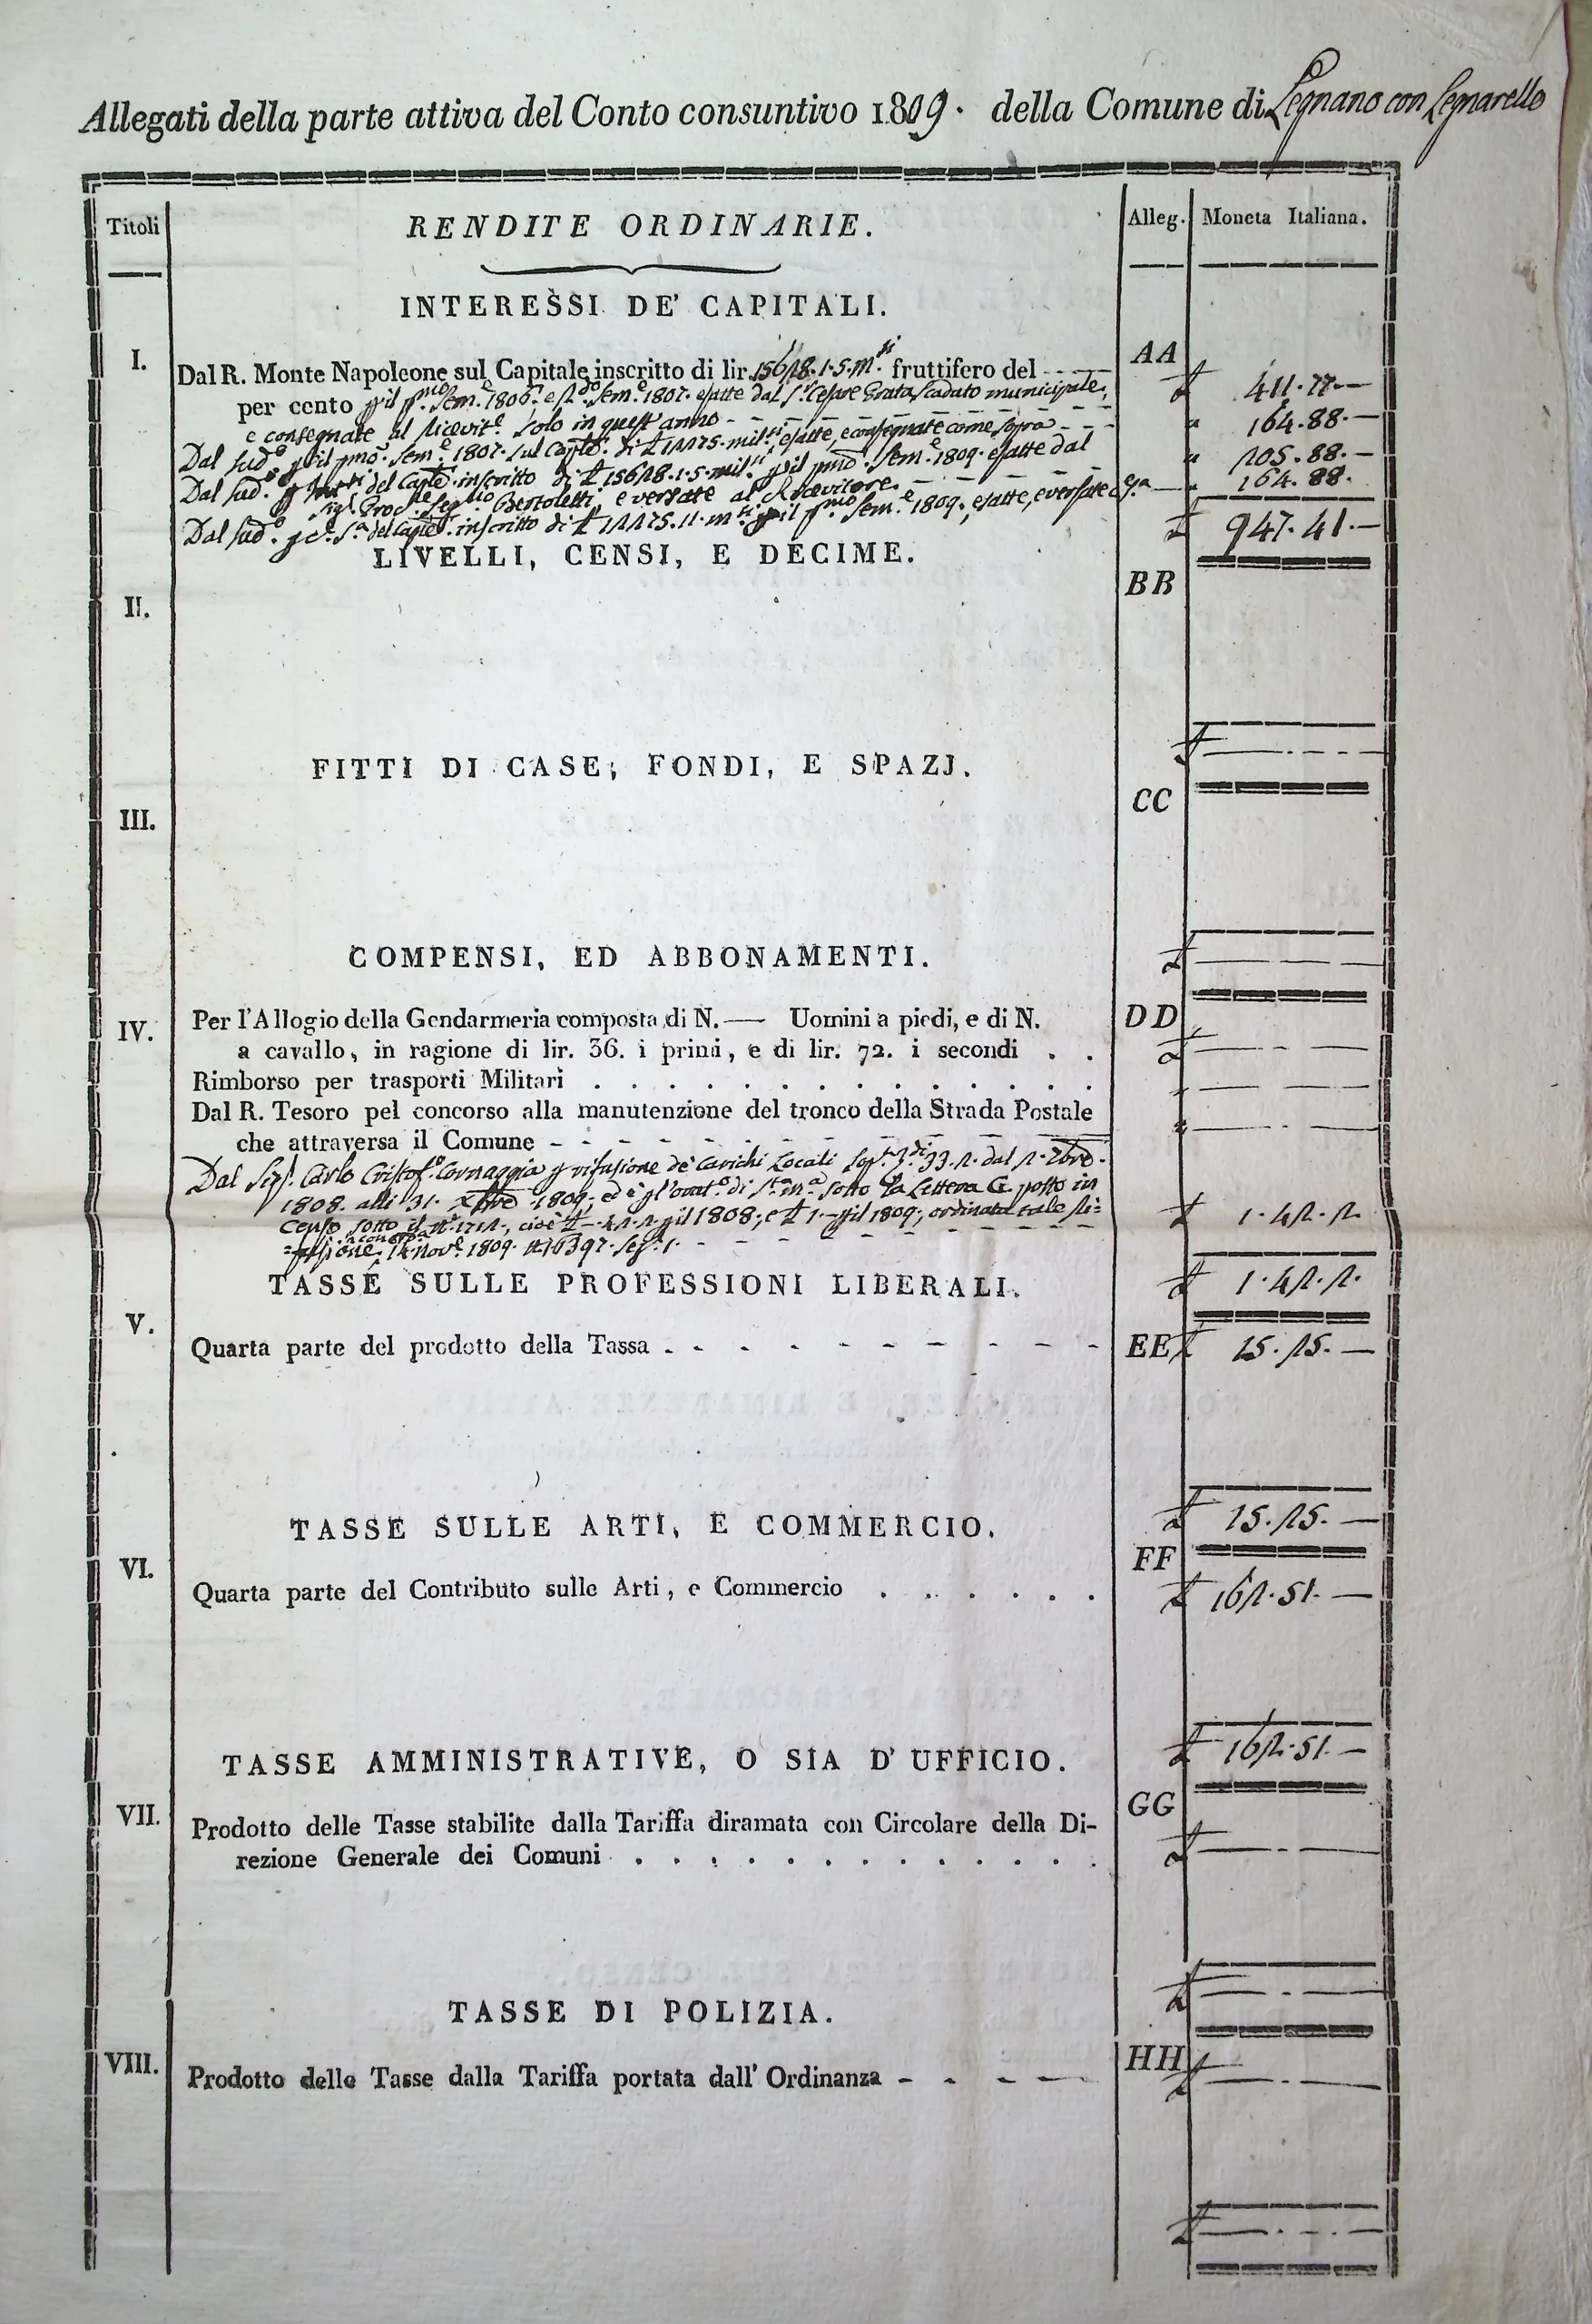 Allegati della parte attiva del Conto consuntivo 1809. della Comune di Legnano con Legnarello
Titoli
RENDITE ORDINARIE.
Alleg.
Moneta Italiana.
INTERESSI DE' CAPITALI.
I.
Dal R. Monte Napoleone sul Capitale inscritto di lir. fruttifero del
AA
per cento Sem.e 1806. e Sem.e 1807. esatte dal Cesare municipale,
411.77.—
e consegnate al Ricevit.e solo in quest'anno
164.88.—
Dal sud.o Sem.e 1807. sul esatte, e consegnate come sopra
205.88.—
Dal sud.o inscritto di Sem.e 1809. esatte dal
164.88.
Bertoletti e versate al Ricevitore
Dal sud.o inscritto di Sem.e 1809, esatte, e versate
947.41.—
LIVELLI, CENSI, E DECIME.
II.
BB
FITTI DI CASE, FONDI, E SPAZJ.
III.
CC
COMPENSI, ED ABBONAMENTI.
IV.
Per l'Allogio della Gendarmeria composta di N.— Uomini a piedi, e di N.
DD
a cavallo, in ragione di lir. 36. i primi, e di lir. 72. i secondi . .
Rimborso per trasporti Militari . . . . . . . . . . . . . .
Dal R. Tesoro pel concorso alla manutenzione del tronco della Strada Postale
che attraversa il Comune - - - - - - - - - - - -
Dal Sig. Carlo Cristof.o Cornaggia rifusione de' Carichi Locali dal
1808. alli 31. Xbre 1809; sotto la Lettera G. posto in
Censo sotto il cioè 1808, e 1809; ordinata tale ri=
=fusione 14 Nov.e 1809.
1.42.2.
TASSE SULLE PROFESSIONI LIBERALI.
1.42.2.
V.
Quarta parte del prodotto della Tassa - - - - - - - - - -
EE
15.25.—
15.25.—
TASSE SULLE ARTI, E COMMERCIO.
VI.
FF
Quarta parte del Contributo sulle Arti, e Commercio . . . . . .
162.51.—
162.51.—
TASSE AMMINISTRATIVE, O SIA D' UFFICIO.
VII.
GG
Prodotto delle Tasse stabilite dalla Tariffa diramata con Circolare della Di-
rezione Generale dei Comuni . . . . . . . . . . . . .
TASSE DI POLIZIA.
VIII.
HH
Prodotto delle Tasse dalla Tariffa portata dall' Ordinanza - - - -